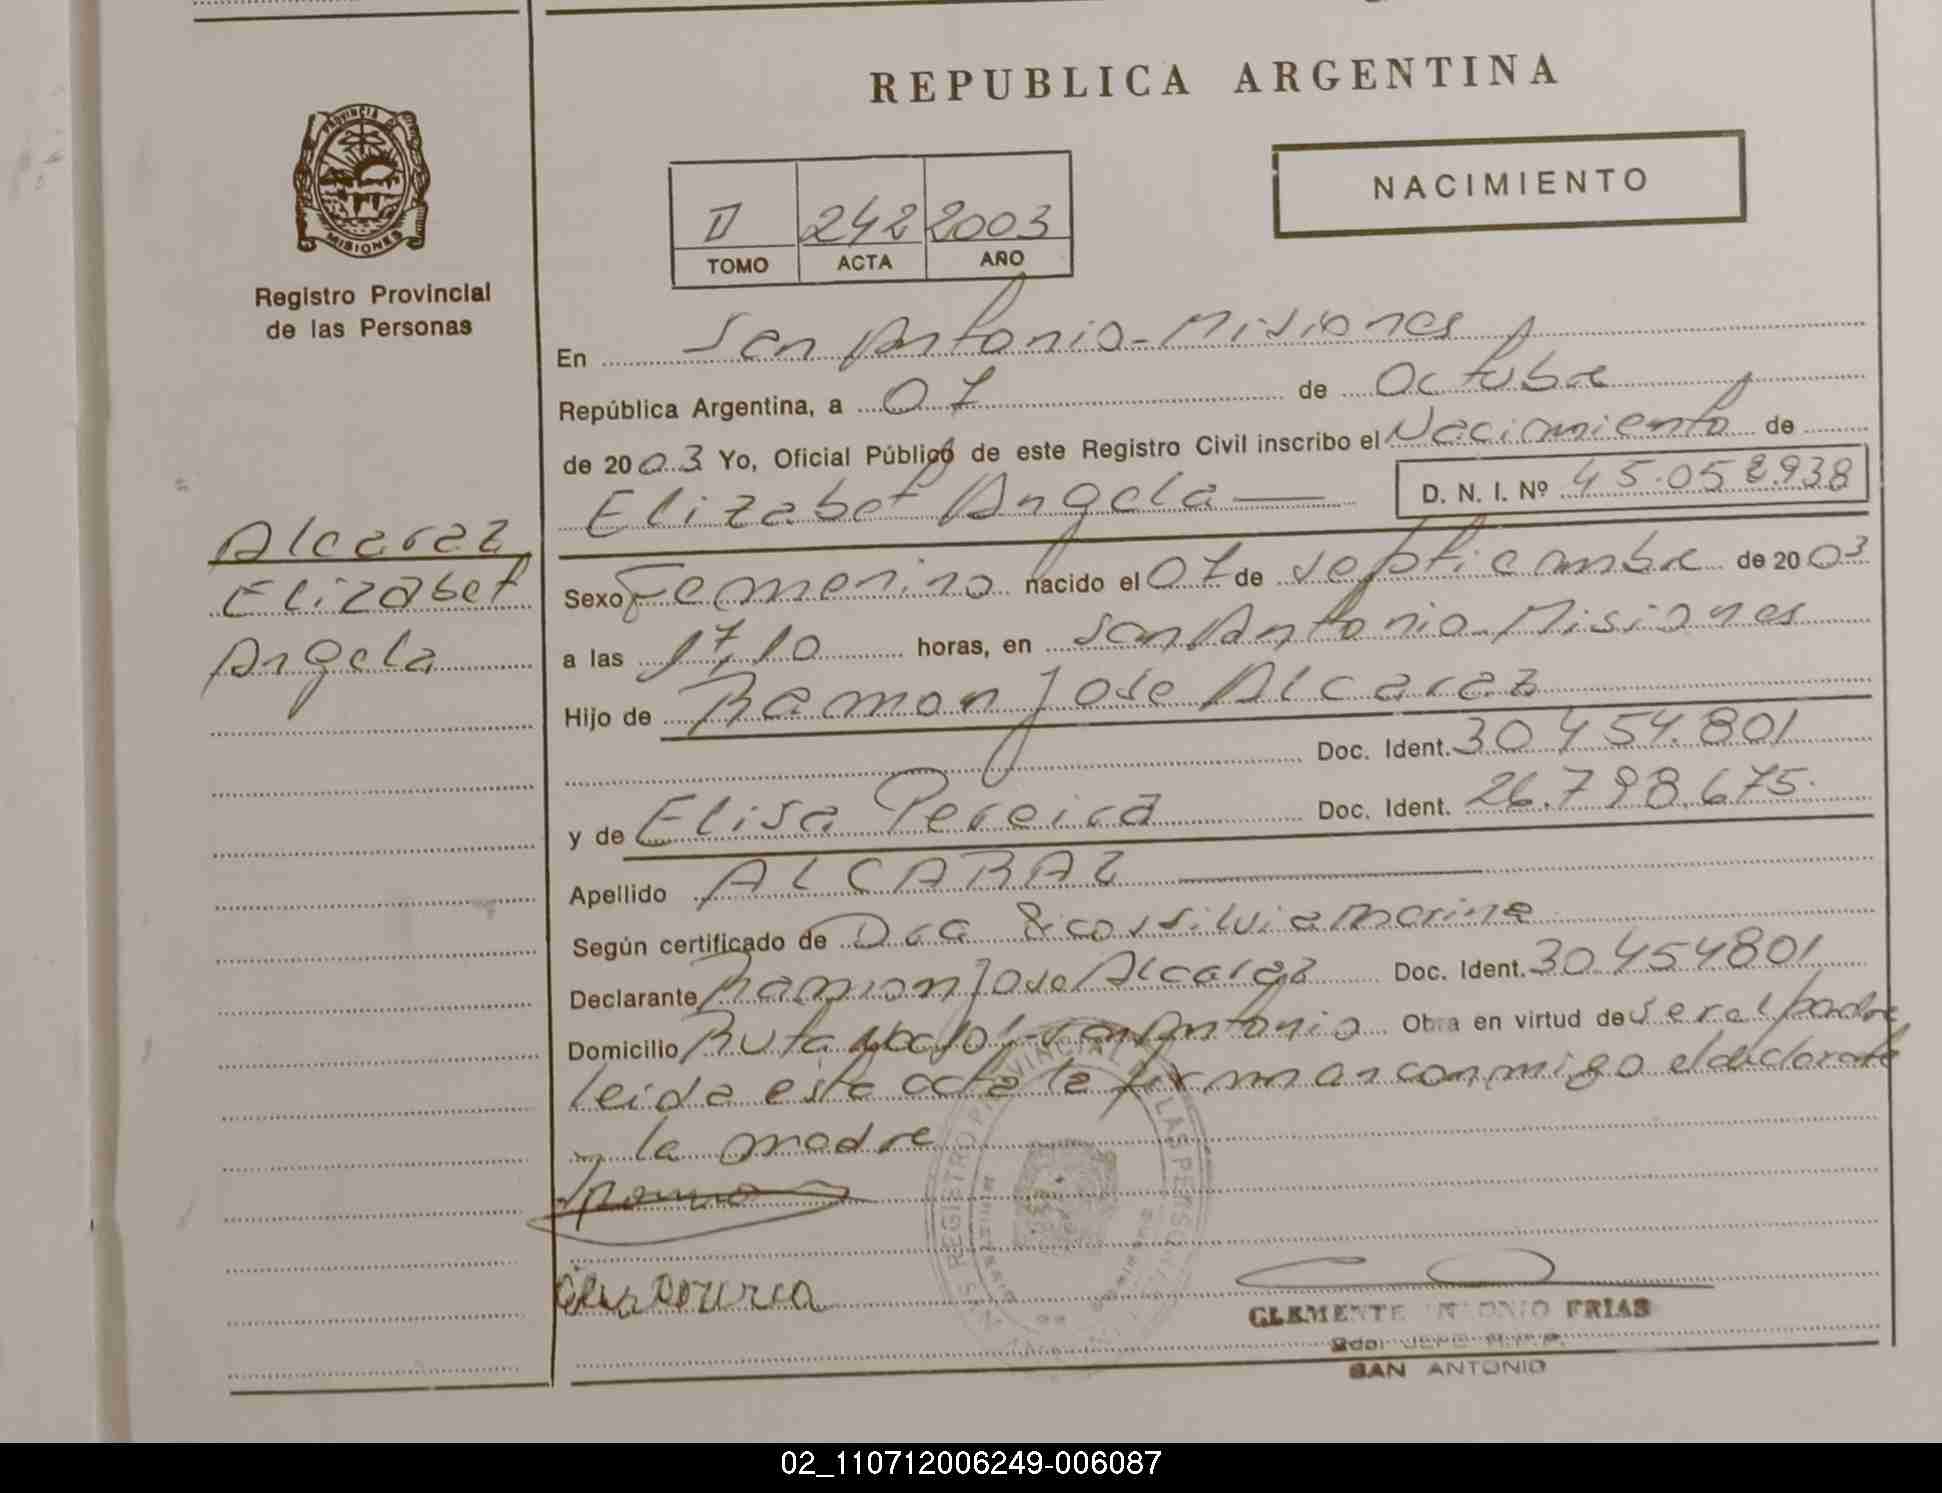 REPUBLICA ARGENTINA
PROVINCIA DE MISIONES
Registro Provincial
de las Personas
NACIMIENTO
II 242 2003
TOMO ACTA AÑO
En San Antonio - Misiones
República Argentina, a 07 de Octubre
de 2003 Yo, Oficial Público de este Registro Civil inscribo el Nacimiento de
Elizabet Angela D. N. I. Nº 45.058.938
Alcaraz
Elizabet
Angela
Sexo Femenino nacido el 07 de septiembre de 2003
a las 17,10 horas, en San Antonio Misiones
Hijo de Ramon Jose Alcaraz
Doc. Ident. 30.454.801
y de Elisa Pereira Doc. Ident. 26.798.675.
Apellido ALCARAZ
Según certificado de Dra Silvia Marina
Declarante Ramon Jose Alcaraz Doc. Ident. 30454801
Domicilio Ruta San Antonio Obra en virtud de ser el padre
leida esta acta la firman conmigo el declarante
y la madre
REGISTRO PROVINCIAL DE LAS PERSONAS
CLEMENTE ANTONIO FRIAS
SAN ANTONIO
02_110712006249-006087